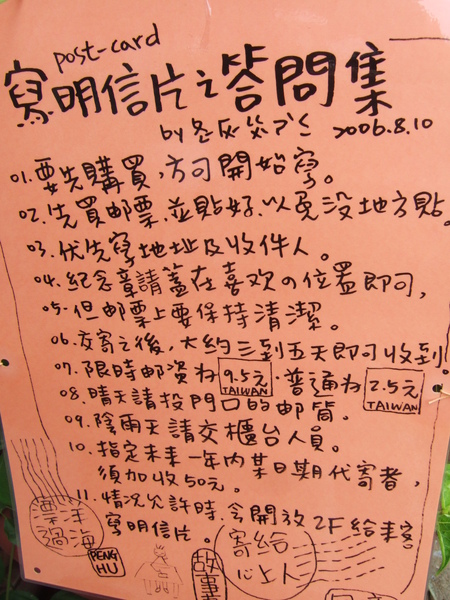 post-card
寫明信片之答問集
2006.8.10
01.要先購買,方可開始寫。
02.先買邮票.並貼好.以免沒地方貼。
03.优先寫地址及收件人。
04.紀念章請蓋在喜欢の位置即可,
05.但邮票上要保持清潔。
06.交寄之後,大約三到五天即可收到.
07.限時邮資为 9.5元 TAIWAN .普通为 2.5元 TAIWAN
08.晴天請投門口的邮筒.
09.陰雨天請交櫃台人員.
10.指定未來一年內某日期代寄者,
須加收50元。
11.情況允許時.会開放2F給來客
寫明信片。
飄洋過海
PENG HU
故事
寄給心上人